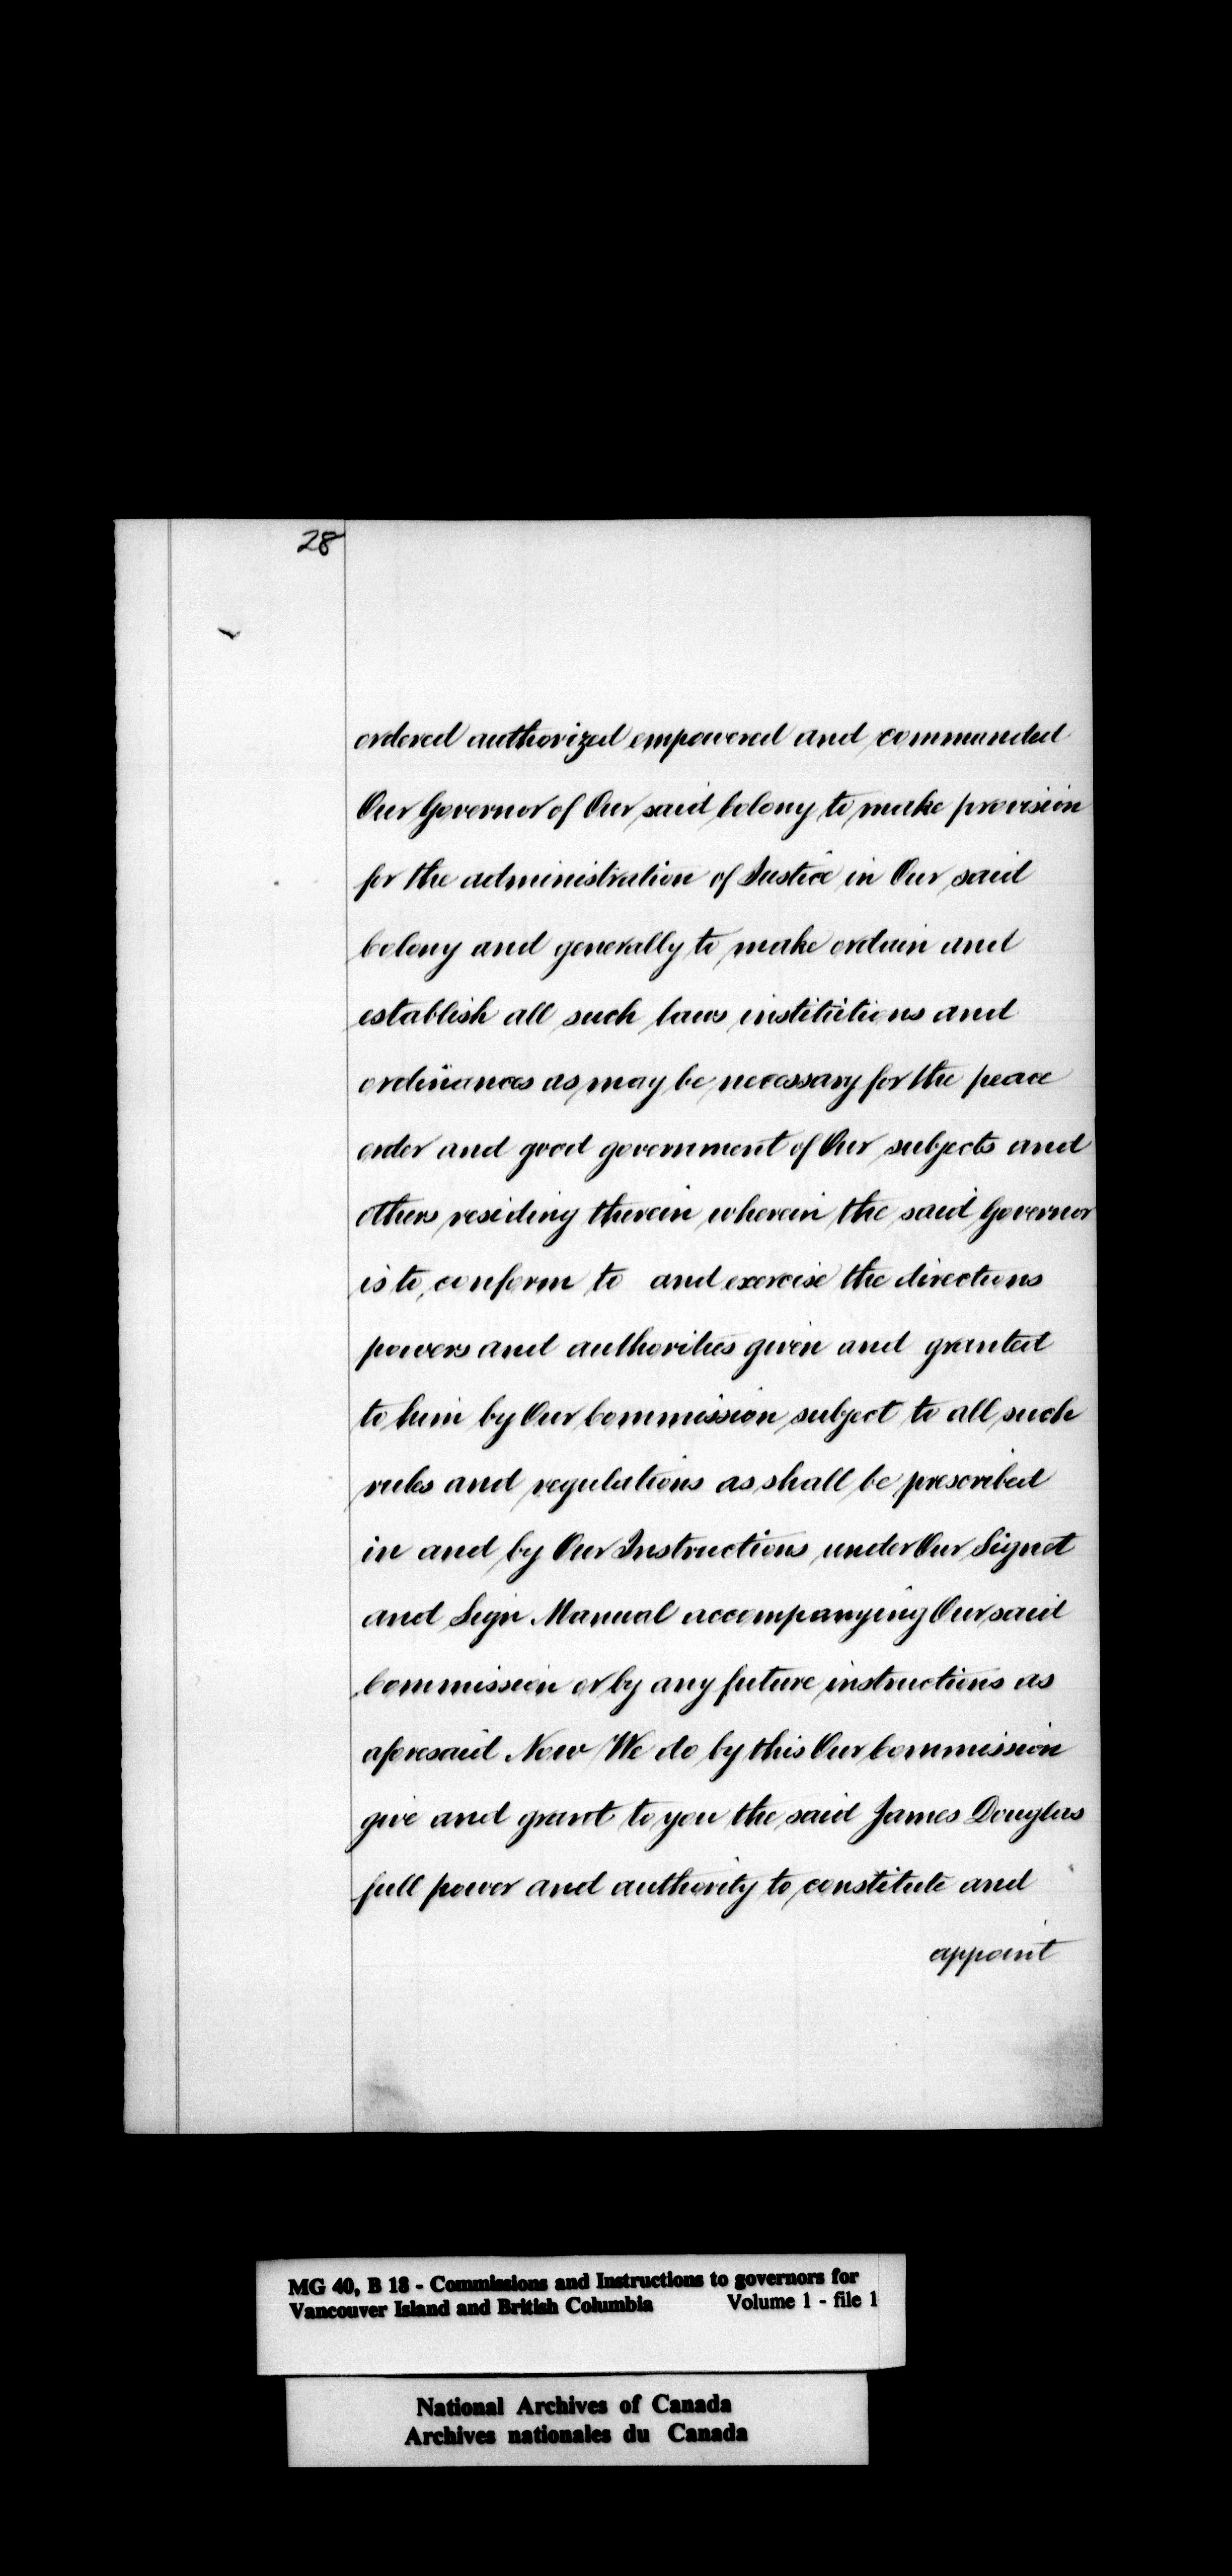 28
ordered authorized empowered and commanded
Our Governor of Our said Colony to make provision
for the administration of Justice in Our said
Colony and generally to make ordain and
establish all such laws institutions and
ordinances as may be necessary for the peace
order and good government of Our subjects and
others residing therein wherein the said Governor
is to conform to and exercise the directions
powers and authorities given and granted
to him by Our Commission subject to all such
rules and regulations as shall be prescribed
in and by Our Instructions under Our Signet
and Sign Manual accompanying Our said
Commission or by any future instructions as
aforesaid Now We do by this Our Commission
give and grant to you the said James Douglas
full power and authority to constitute and
appoint
MG 40, B 18 - Commissions and Instructions to governors for
Vancouver Island and British Columbia Volume 1 - file 1
National Archives of Canada
Archives nationales du Canada